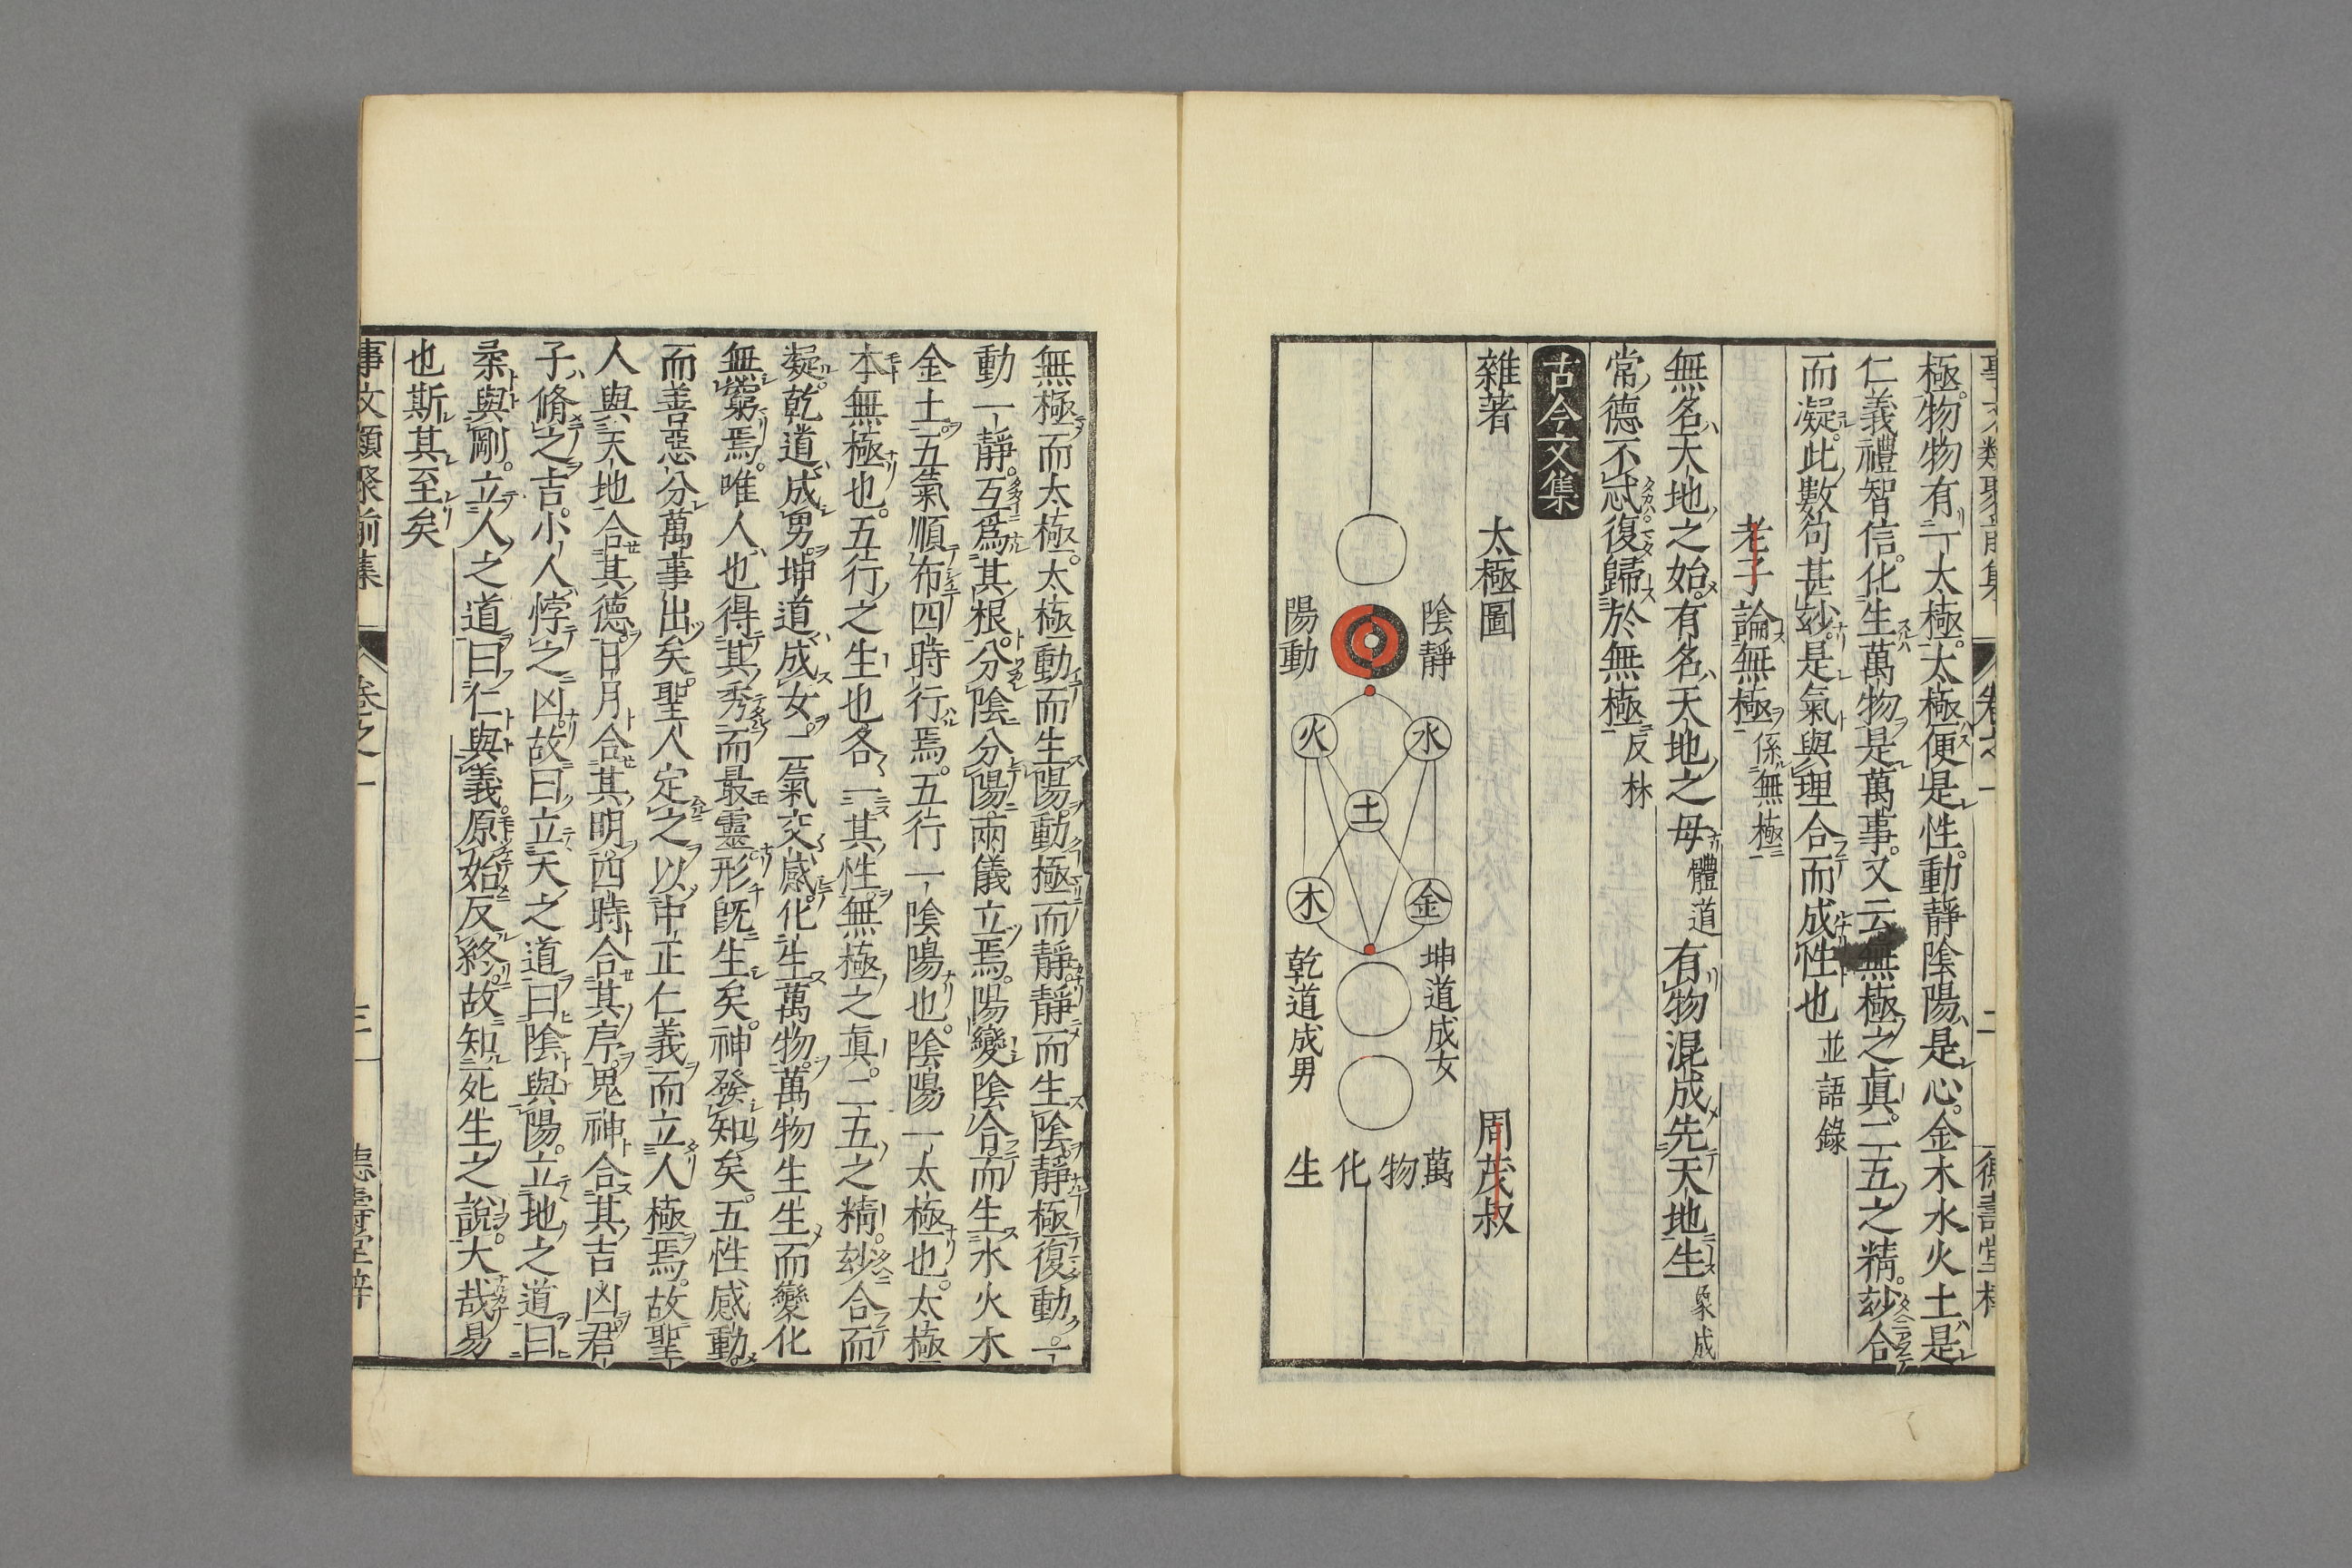 極物物有一太極太極便是性動靜陰陽是心金木水火土是
仁義禮智信化生萬物是萬事又云無極之眞二五之精玅合
而凝此數句甚玅是氣與理合而成性也 並語錄
老子論無極 係無極
無名天地之始有名天地之母 體道 有物混成先天地生 象成
常德不忒復歸於無極 反朴
古今文集
雜著 太極圖 周茂叔
陰靜
陽動
水
火
土
金
木
坤道成女
乾道成男
萬物化生
無極而太極太極動而生陽動極而靜靜而生陰靜極復動一
動一靜互爲其根分陰分陽兩儀立焉陽變陰合而生水火木
金土五氣順布四時行焉五行一陰陽也陰陽一太極也太極
本無極也五行之生也各一其性無極之眞二五之精玅合而
凝乾道成男坤道成女二氣交感化生萬物萬物生生而變化
無窮焉唯人也得其秀而最靈形既生矣神發知矣五性感動
而善惡分萬事出矣聖人定之以中正仁義而立人極焉故聖
人與天地合其德日月合其明四時合其序鬼神合其吉凶君
子脩之吉小人悖之凶故曰立天之道曰陰與陽立地之道曰
柔與剛立人之道曰仁與義原始反終故知死生之說大哉易
也斯其至矣
事文類聚前集 卷之一 三 德壽堂梓